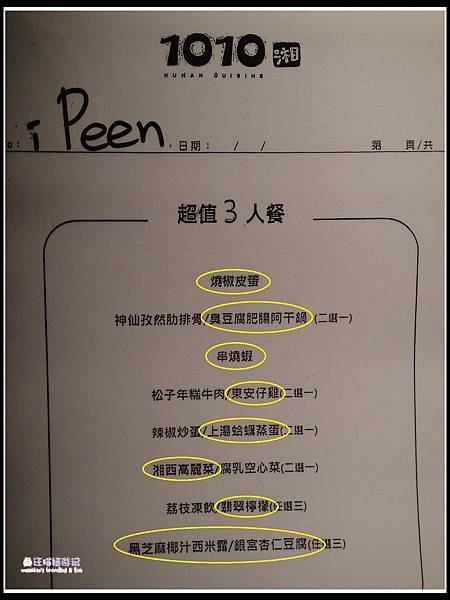 1010 湘
HUNAN CUISINE
o: i Peen 日期： / / 第 頁/共
超值 3 人餐
燒椒皮蛋
神仙孜然肋排骨/臭豆腐肥腸阿干鍋 (二選一)
串燒蝦
松子年糕牛肉/東安仔雞(二選一)
辣椒炒蛋/上湯蛤蠣蒸蛋(二選一)
湘西高麗菜/腐乳空心菜(二選一)
荔枝凍飲/翡翠檸檬(任選三)
黑芝麻椰汁西米露/銀宮杏仁豆腐(任選三)